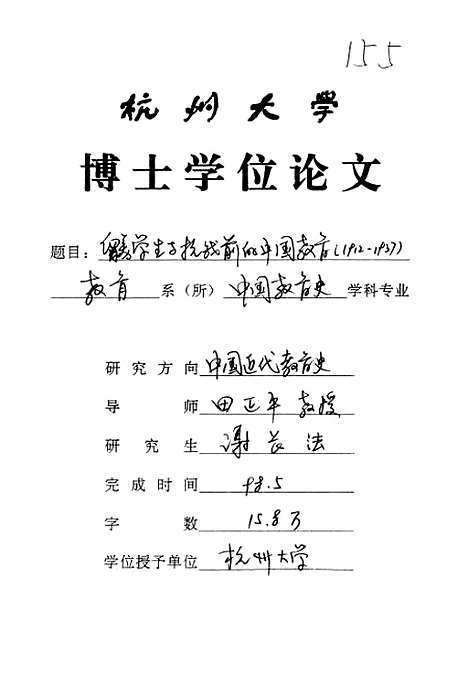 155
杭州大学
博士学位论文
题目：留美学生与抗战前的中国教育(1912-1937)
教育 系（所） 中国教育史 学科专业
研究方向 中国近代教育史
导师 田正平 教授
研究生 谢长法
完成时间 98.5
字数 15.8万
学位授予单位 杭州大学